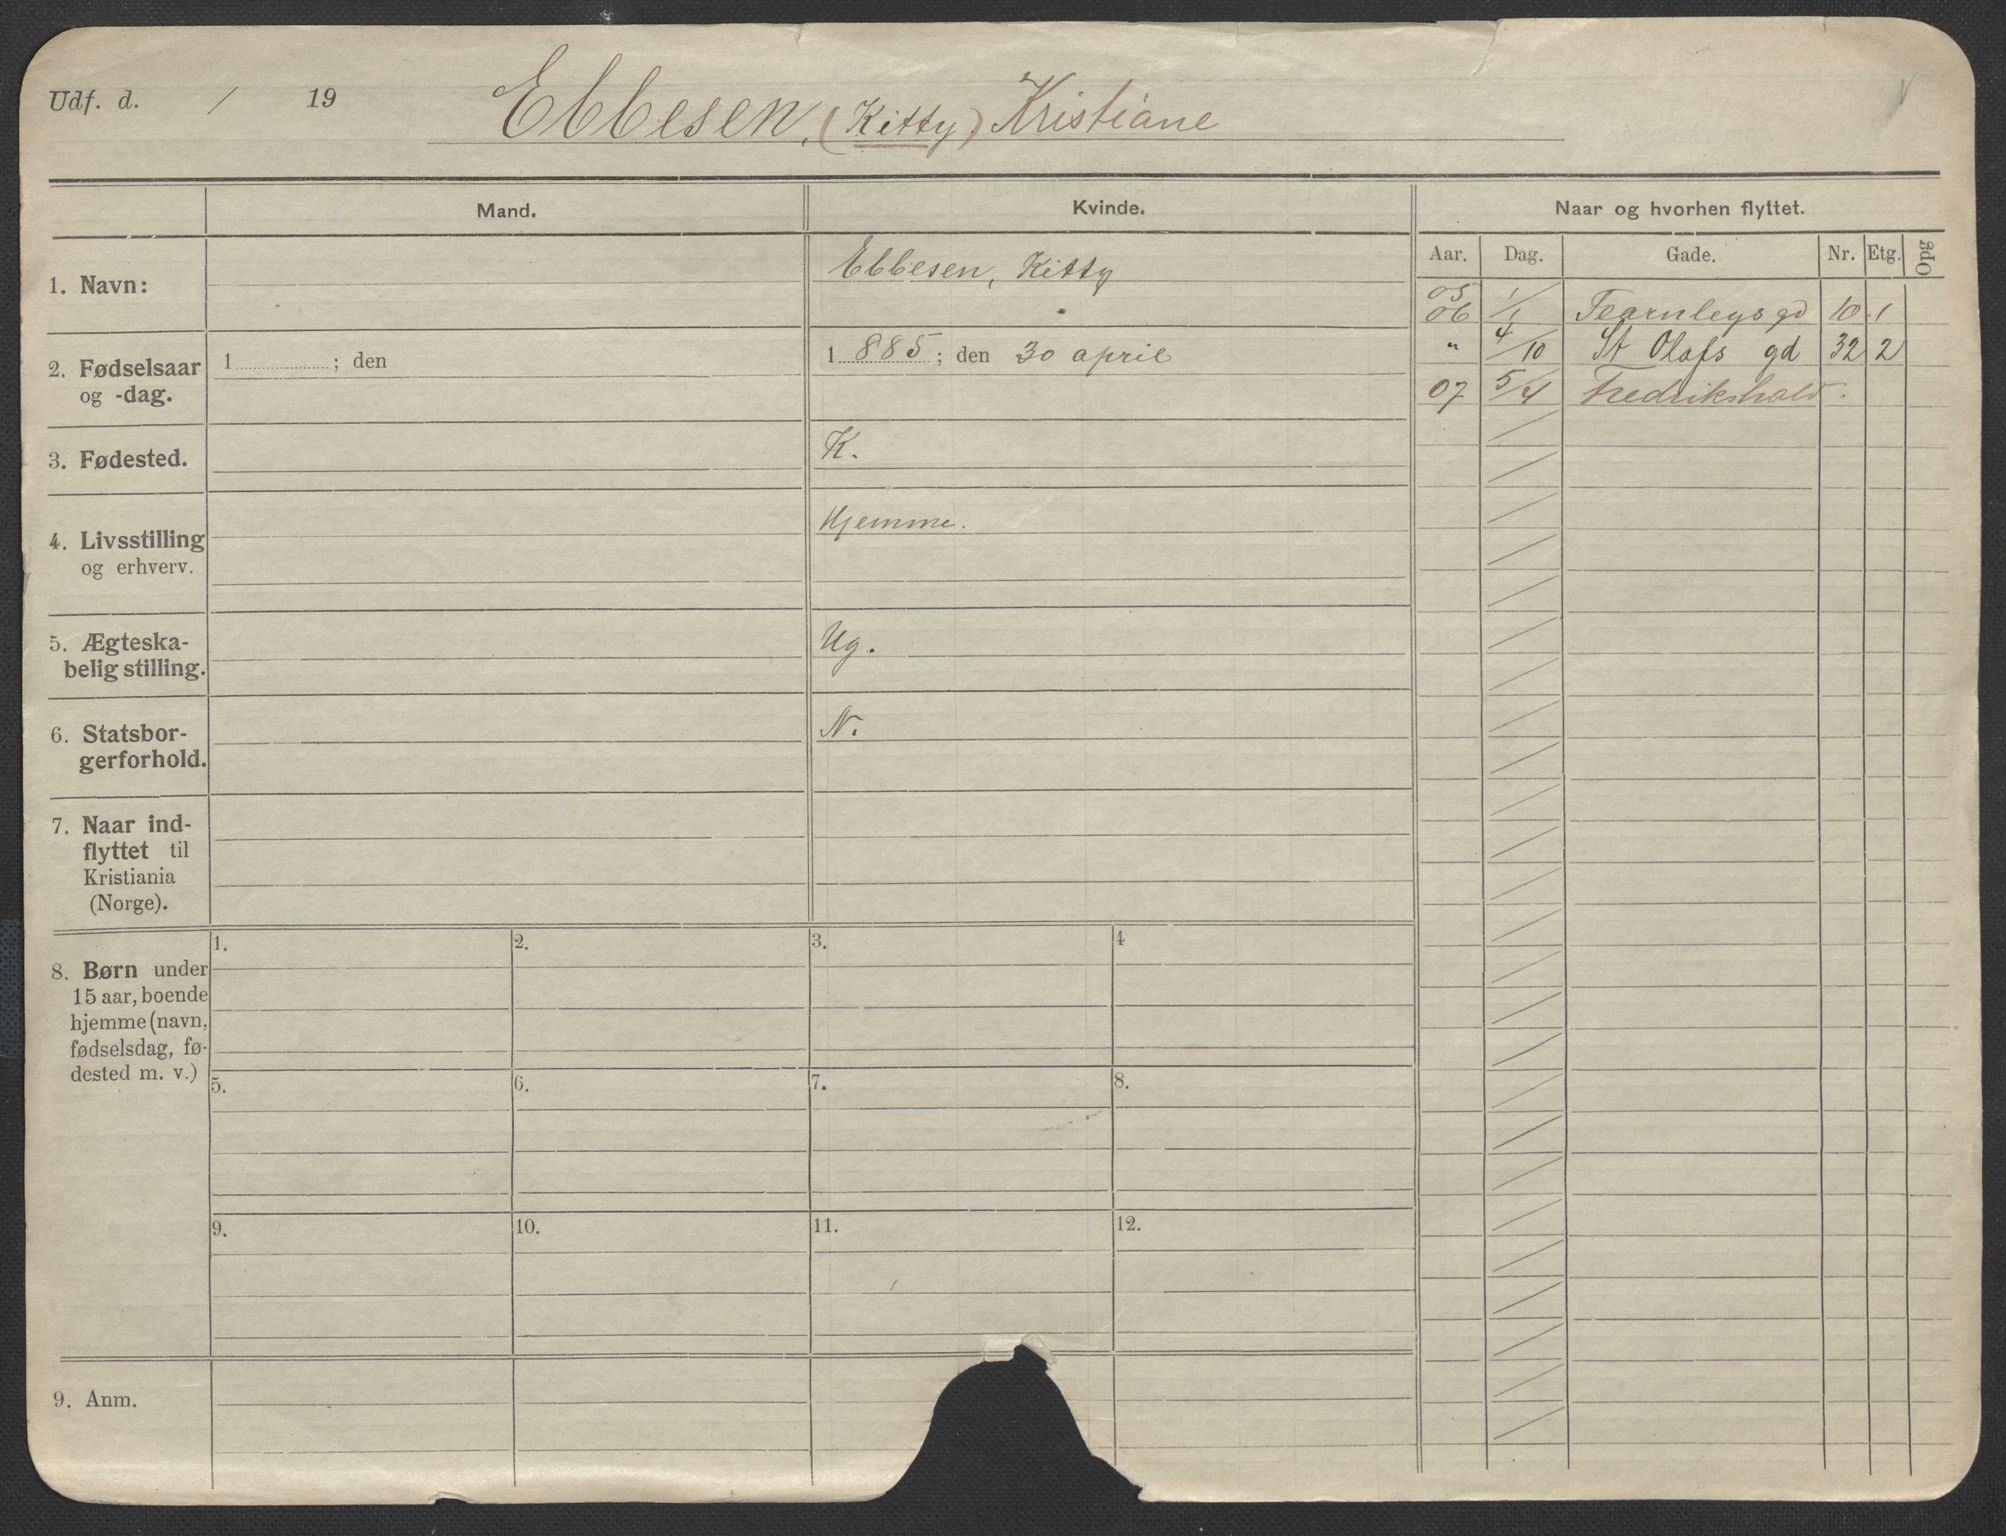 Udf. d. / 19 Ebbesen, (Kitty) Kristiane
Mand. Kvinde. Naar og hvorhen flyttet.
Aar. Dag. Gade. Nr. Etg. Opg
1. Navn: Ebbesen, Kitty
05
06 1/1 Fearnleys gd 10 1
" 4/10 St Olafs gd 32 2
07 5/4 Fredrikshald.
2. Fødselsaar
og -dag.
1 ; den 1 885 ; den 30 april
3. Fødested. K.
4. Livsstilling
og erhverv.
Hjemme.
5. Ægteska-
belig stilling.
Ug.
6. Statsbor-
gerforhold.
N.
7. Naar ind-
flyttet til
Kristiania
(Norge).
8. Børn under
15 aar, boende
hjemme (navn,
fødselsdag, fø-
dested m. v.)
1. 2. 3. 4
5. 6. 7. 8.
9. 10. 11. 12.
9. Anm.